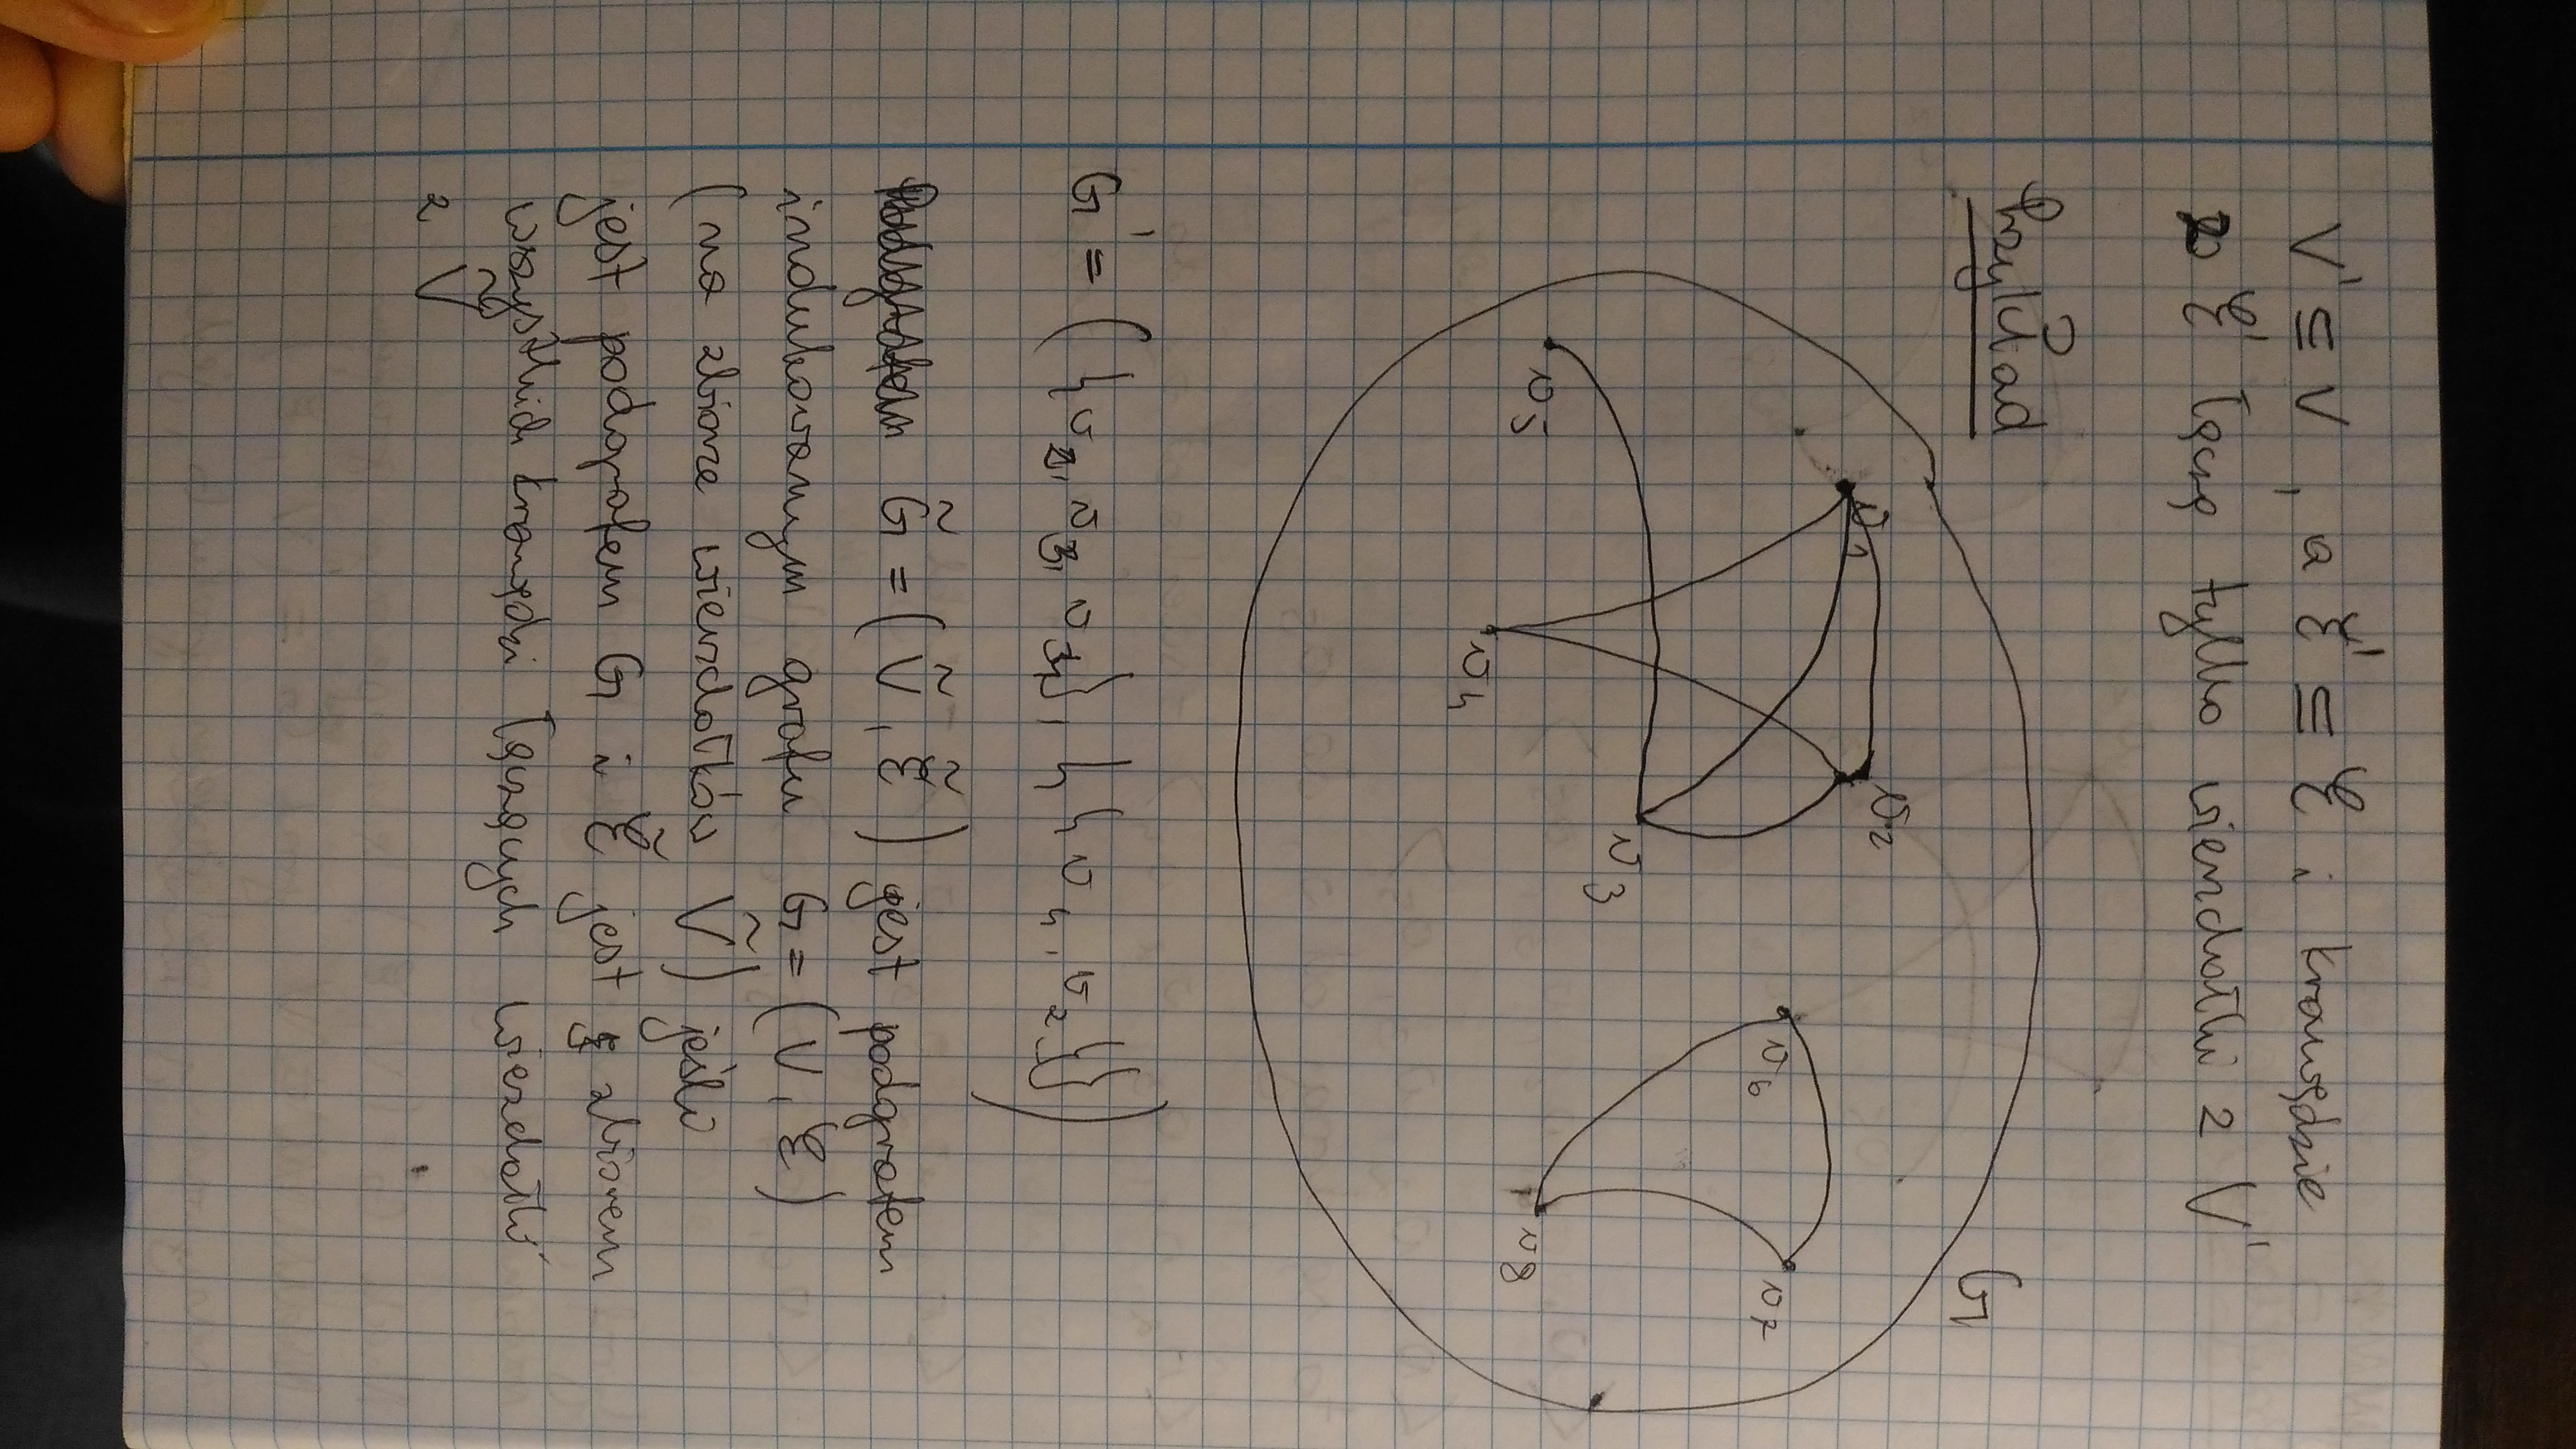 V' ⊆ V , a Ɛ' ⊆ Ɛ i krawędzie
z Ɛ' łączą tylko wierzchołki z V'
Przykład
G
v1
v2
v6
v7
v3
v5
v8
v4
G' = ( { v2, v3, v4 }, { { v4, v2 } } )
G̃ = ( Ṽ , Ɛ̃ ) jest podgrafem
indukowanym grafu G = ( V , Ɛ )
( na zbiorze wierzchołków Ṽ ) jeśli
jest podgrafem G i Ɛ̃ jest zbiorem
wszystkich krawędzi łączących wierzchołki
z Ṽ